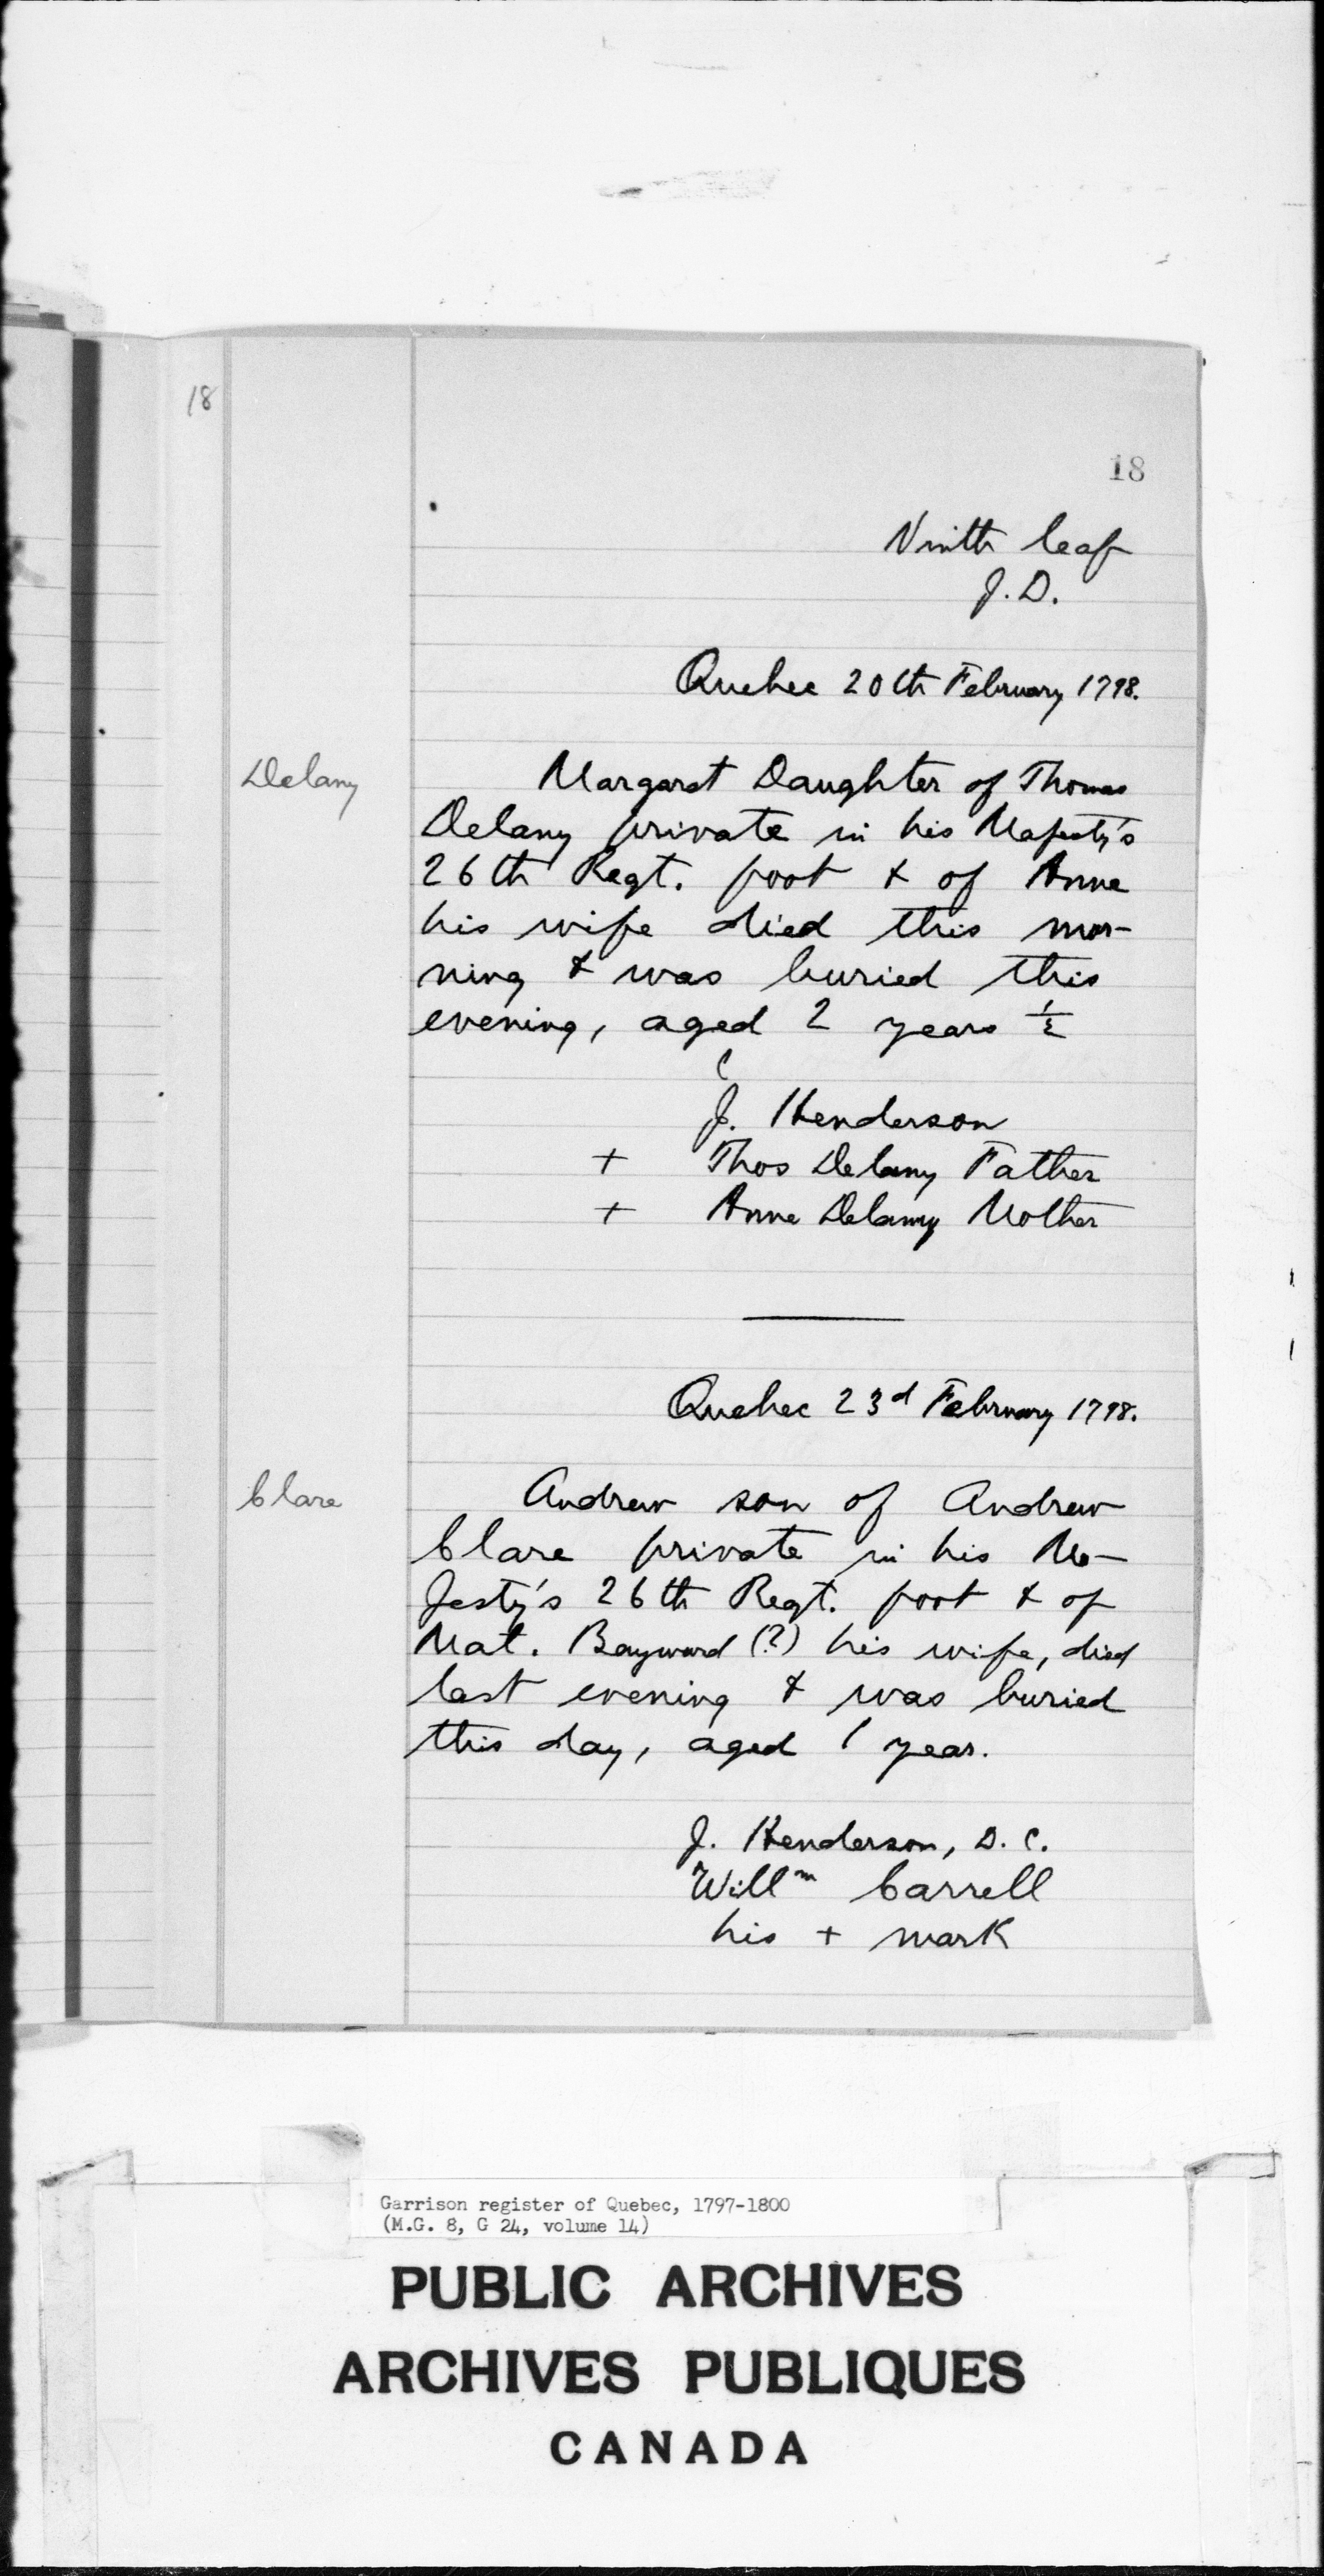 18
18
Ninth leaf
J.D.
Quebec 20th February 1798.
Delany
Margaret Daughter of Thomas
Delany private in his Majesty's
26th Regt. foot & of Anne
his wife died this mor-
ning & was buried this
evening, aged 2 years 1/2
J. Henderson
+ Thos Delany Father
+ Anne Delany Mother
Quebec 23d February 1798.
Clare
Andrew son of Andrew
Clare private in his Ma-
jesty's 26th Regt. foot & of
Mat. Bayward (?) his wife, died
last evening & was buried
this day, aged 1 year.
J. Henderson, D.C.
Willm Carrell
his + mark
Garrison register of Quebec, 1797-1800
(M.G. 8, G 24, volume 14)
PUBLIC ARCHIVES
ARCHIVES PUBLIQUES
CANADA